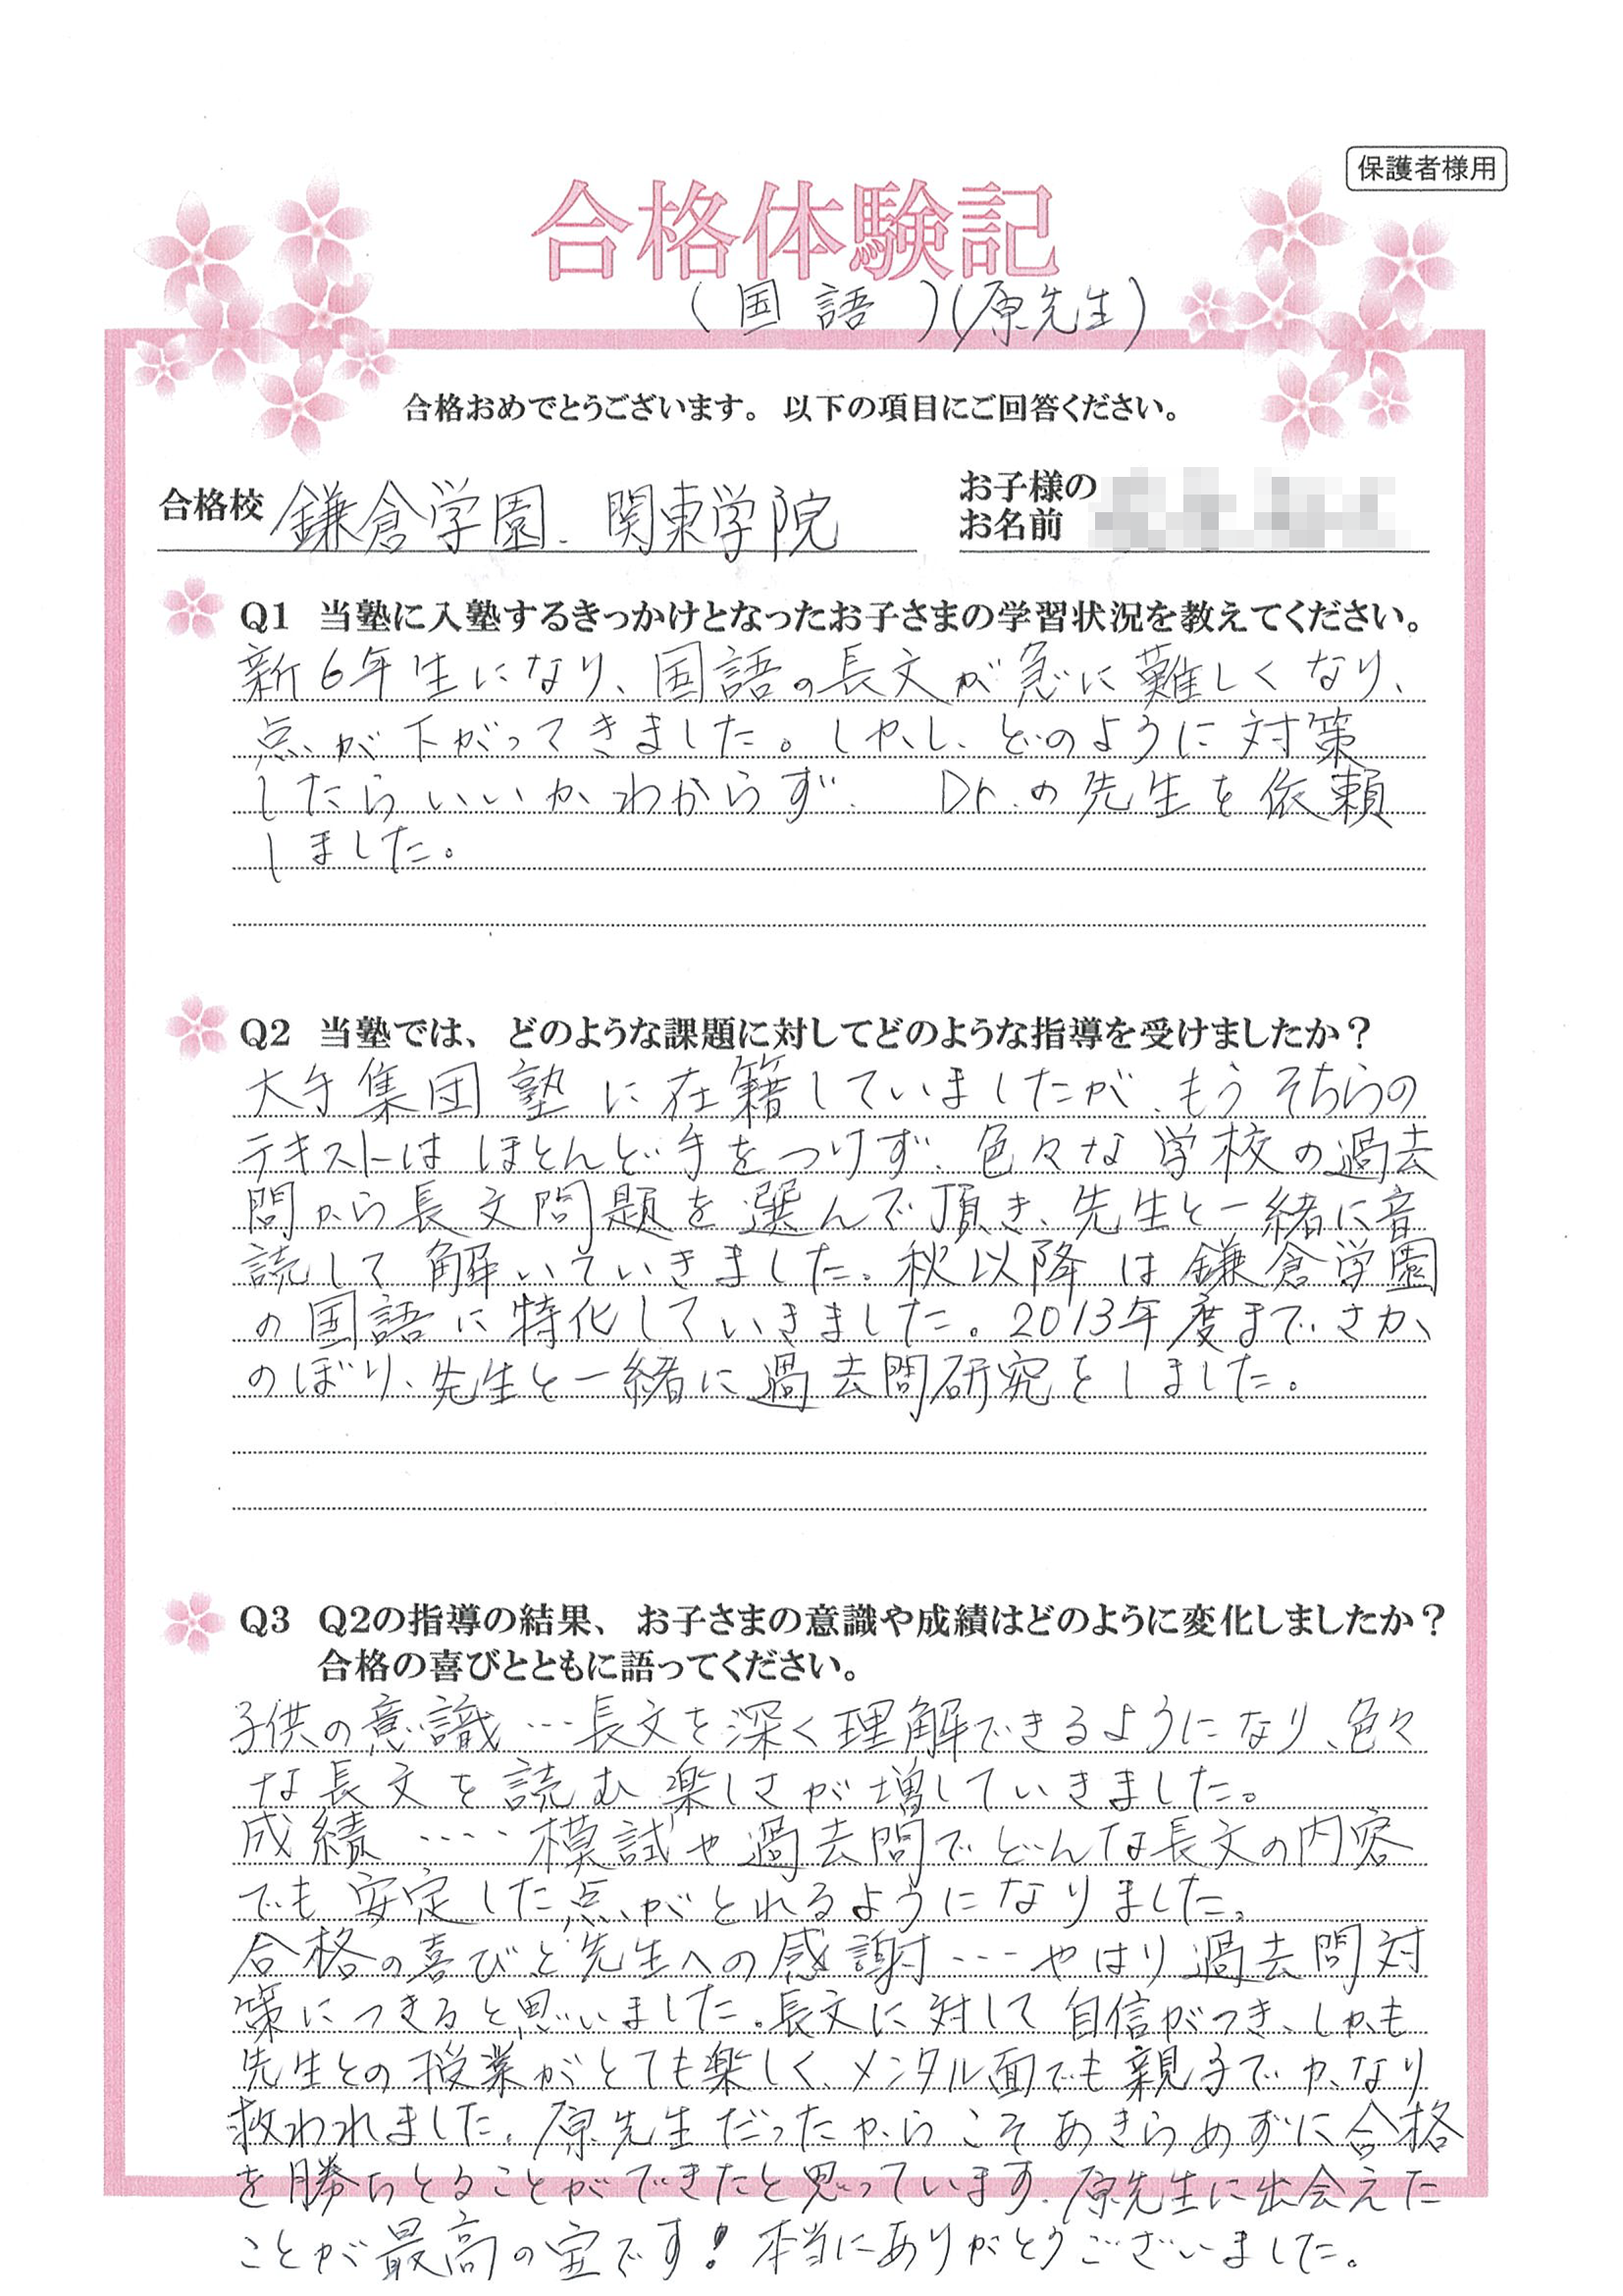 保護者様用
合格体験記
(国語)(原先生)
合格おめでとうございます。以下の項目にご回答ください。
合格校 鎌倉学園、関東学院
お子様の
お名前
Q1 当塾に入塾するきっかけとなったお子さまの学習状況を教えてください。
新6年生になり、国語の長文が急に難しくなり、
点が下がってきました。しかし、どのように対策
したらいいかわからず、Dr.の先生を依頼
しました。
Q2 当塾では、どのような課題に対してどのような指導を受けましたか？
大手集団塾に在籍していましたが、もうそちらの
テキストはほとんど手をつけず、色々な学校の過去
問から長文問題を選んで頂き、先生と一緒に音
読して解いていきました。秋以降は鎌倉学園
の国語に特化していきました。2013年度までさか
のぼり、先生と一緒に過去問研究をしました。
Q3 Q2の指導の結果、お子さまの意識や成績はどのように変化しましたか？
合格の喜びとともに語ってください。
子供の意識…長文を深く理解できるようになり、色々
な長文を読む楽しさが増していきました。
成績‥‥模試や過去問でどんな長文の内容
でも安定した点がとれるようになりました。
合格の喜びと先生への感謝…やはり過去問対
策につきると思いました。長文に対して自信がつき、しかも
先生との授業がとても楽しく、メンタル面でも親子でかなり
救われました。原先生だったからこそあきらめずに合格
を勝ちとることができたと思っています。原先生に出会えた
ことが最高の宝です！本当にありがとうございました。